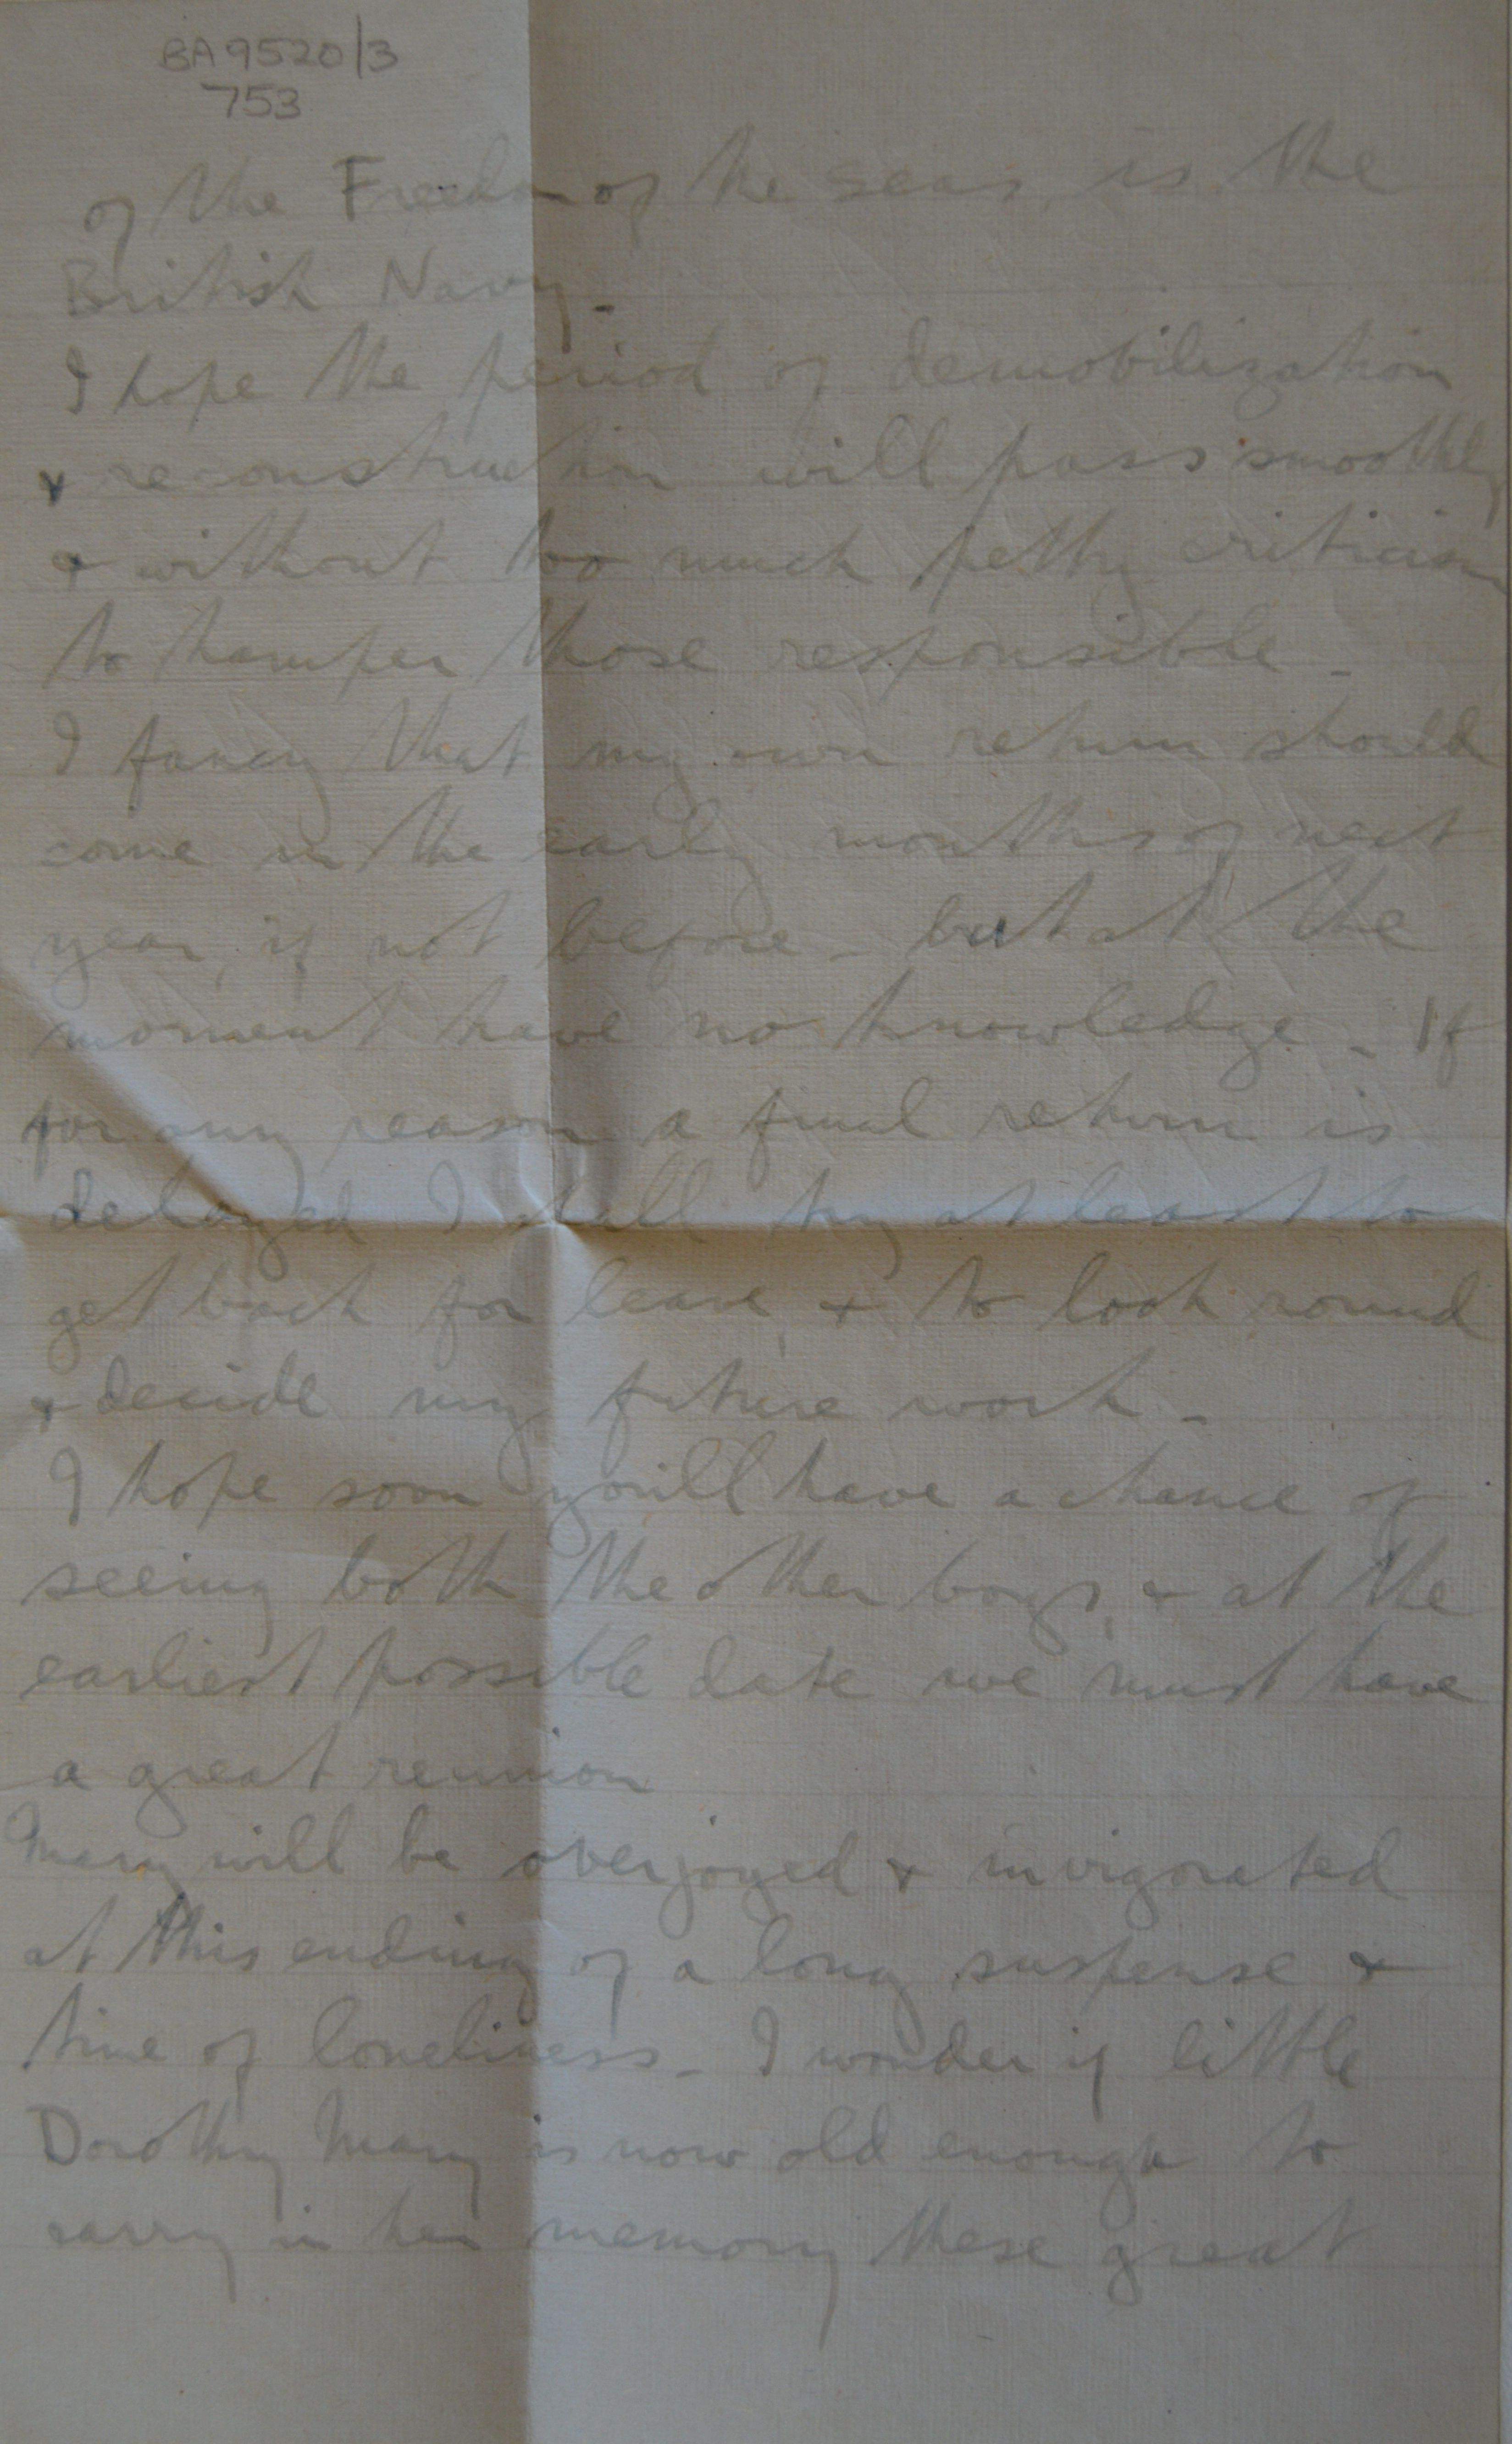 BA9520/3
753
of the Freedom of the seas, is the
British Navy -
I hope the period of demobilization
& reconstruction will pass smoothly
& without too much petty criticism
to hamper those responsible -
I fancy that my own return should
come in the early months of next
year, if not before - but at the
moment have no knowledge - If
for any reason a final return is
delayed I shall try at least to
get back for leave, & to look round
& decide my future work -
I hope soon you'll have a chance of
seeing both the other boys, & at the
earliest possible date we must have
a great reunion
Mary will be overjoyed & invigorated
at this ending of a long suspense &
time of loneliness - I wonder if little
Dorothy Mary is now old enough to
carry in her memory these great